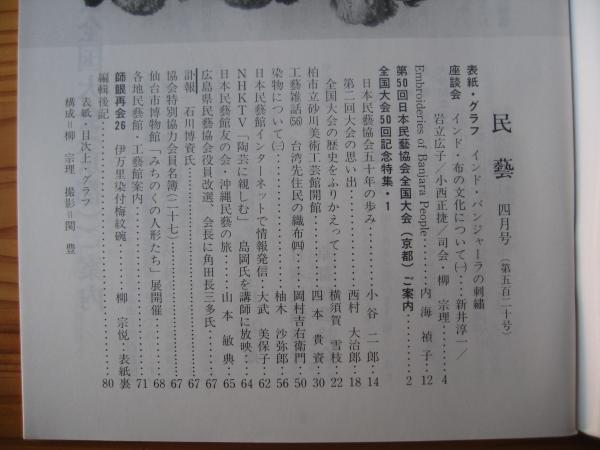 民藝 四月号 (第五百二十号)
表紙・グラフ インド・バンジャーラの刺繡
座談会 インド・布の文化について㈠…新井淳一/
岩立広子/小西正捷/司会・柳 宗理……4
Embroideries of Banjara People……内海 禎子…12
第50回日本民藝協会全国大会(京都)ご案内……2
全国大会50回記念特集・1
日本民藝協会五十年の歩み……小谷 二郎…14
第二回大会の思い出……西村 大治郎…18
全国大会の歴史をふりかえって……横須賀 雪枝…22
柏市立砂川美術工芸館開館……四本 貴資…30
工藝雑話(56) 台湾先住民の織布㈣……岡村吉右衛門…50
染物について㈢……柚木 沙弥郎…56
日本民藝館インターネットで情報発信…大武 美保子…62
NHKTV「陶芸に親しむ」 島岡氏を講師に放映…64
日本民藝館友の会・沖縄民藝の旅……山本 敏典…65
広島県民藝協会役員改選、会長に角田長三多氏……67
訃報 石川博資氏……67
協会特別協力会員名簿(二十七)……67
仙台市博物館「みちのくの人形たち」展開催……68
各地民藝館・工藝館案内……71
師眼再会26 伊万里染付梅紋碗……柳 宗悦・表紙裏
編輯後記……80
表紙・目次上・グラフ
構成=柳 宗理 撮影=関 豊